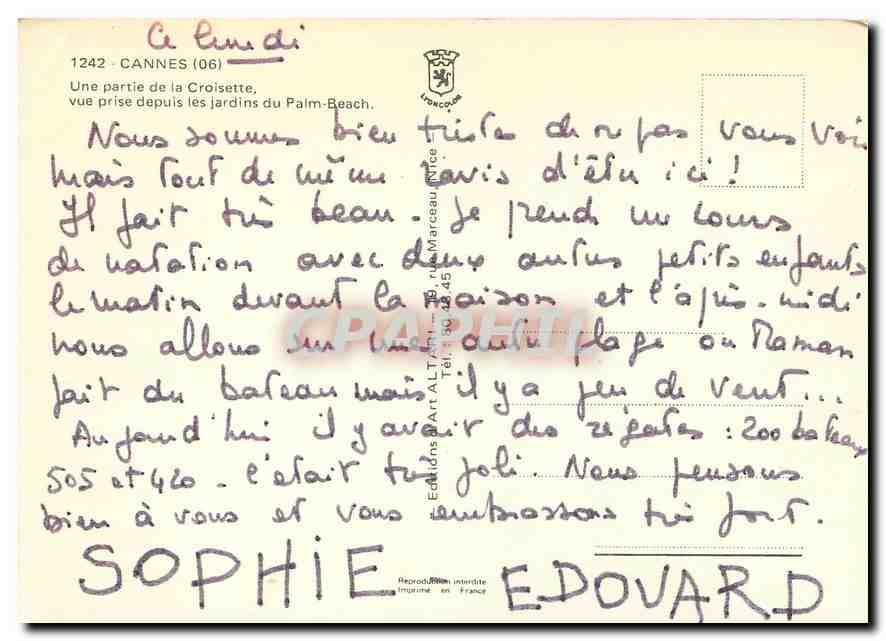 Ce lundi
1242 - CANNES (06)
Une partie de la Croisette,
vue prise depuis les jardins du Palm-Beach.
LYONCOLOR
Nous sommes bien tristes de ne pas vous voir
mais tout de même ravis d'être ici !
Il fait très beau. Je prends un cours
de natation avec deux autres petits enfants
le matin devant la maison et l'après-midi
nous allons sur une autre plage où Maman
fait du bateau mais il y a peu de vent...
Aujourd'hui il y avait des régates : 200 bateaux
505 et 420. c'était très joli. Nous pensons
bien à vous et vous embrassons très fort.
SOPHIE EDOUARD
Editions d'Art ALTARI — 19, rue Marceau, Nice
Tél. : 80.48.45
CPAPHIL
Reproduction interdite
Imprimé en France